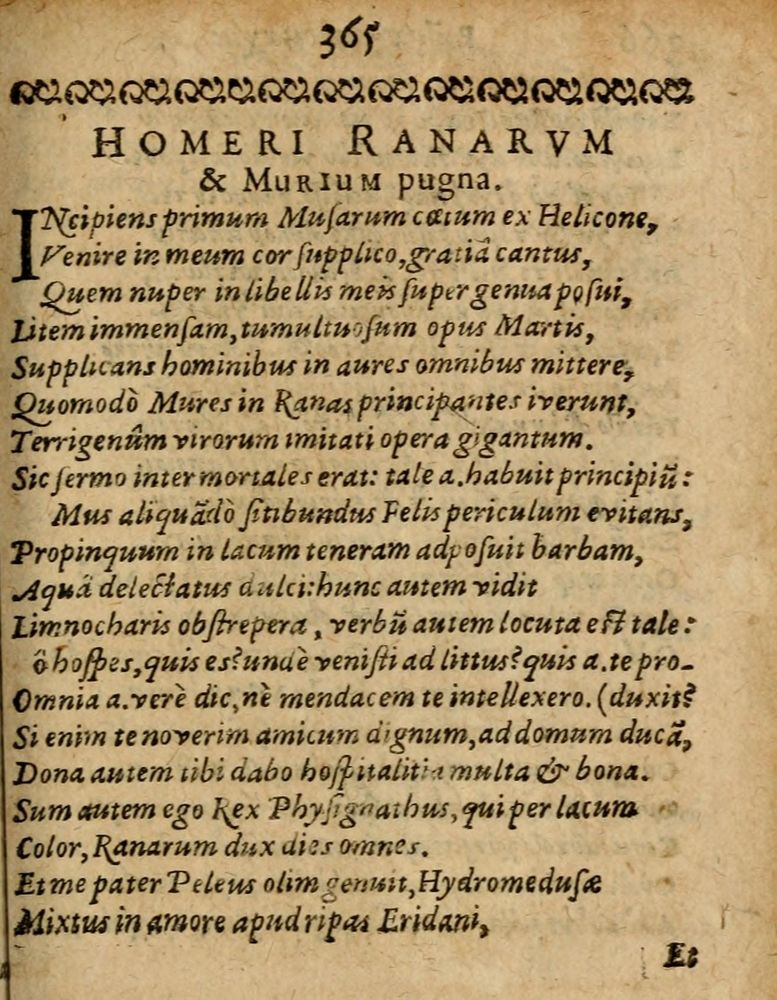 365
HOMERI RANARVM
& MURIUM pugna.
INcipiens primum Muſarum cœtum ex Helicone,
Venire in meum cor ſupplico, gratiâ cantus,
Quem nuper in libellis meis ſuper genua poſui,
Litem immenſam, tumultuoſum opus Martis,
Supplicans hominibus in aures omnibus mittere,
Quomodò Mures in Ranas principantes iverunt,
Terrigenûm virorum imitati opera gigantum.
Sic ſermo inter mortales erat: tale a. habuit principiũ:
Mus aliquãdò ſitibundus Felis periculum evitans,
Propinquum in lacum teneram adpoſuit barbam,
Aquâ delectatus dulci: hunc autem vidit
Limnocharis obſtrepera, verbũ autem locuta eſt tale:
ô hoſpes, quis es? undè veniſti ad littus? quis a. te pro-
Omnia a. verè dic, nè mendacem te intellexero. (duxit?
Si enim te noverim amicum dignum, ad domum ducã,
Dona autem tibi dabo hoſpitalitia multa & bona.
Sum autem ego Rex Phyſignathus, qui per lacum
Color, Ranarum dux dies omnes.
Et me pater Peleus olim genuit, Hydromeduſæ
Mixtus in amore apud ripas Eridani,
Et